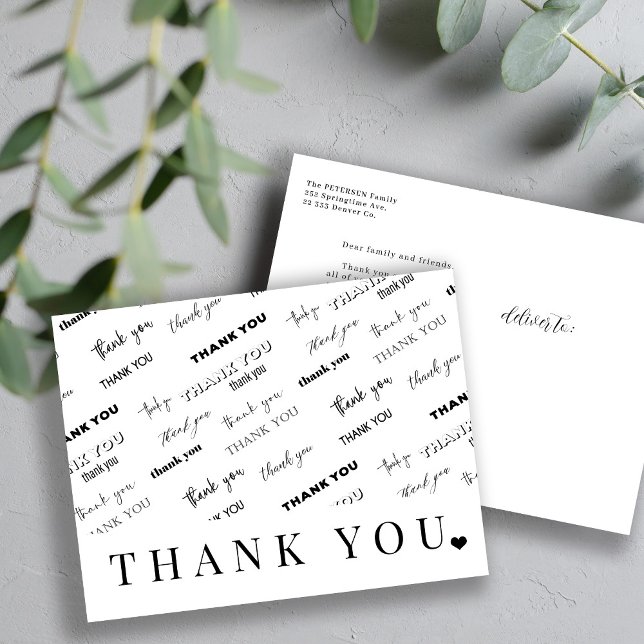 The PETERSUN Family
252 Springtime Ave.
22 333 Denver Co.
Dear family and friends,
Thank you
all of
deliver to:
thank you thank you thank you THANK YOU
thank you THANK YOU thank you thank you
THANK YOU THANK YOU thank you thank you
thank you thank you thank you thank you
THANK YOU thank you thank you THANK YOU THANK YOU
THANK YOU thank you THANK YOU THANK YOU THANK YOU
thank you thank you thank you THANK YOU thank you
thank you thank you THANK YOU thank you
THANK YOU THANK YOU THANK YOU
THANK YOU